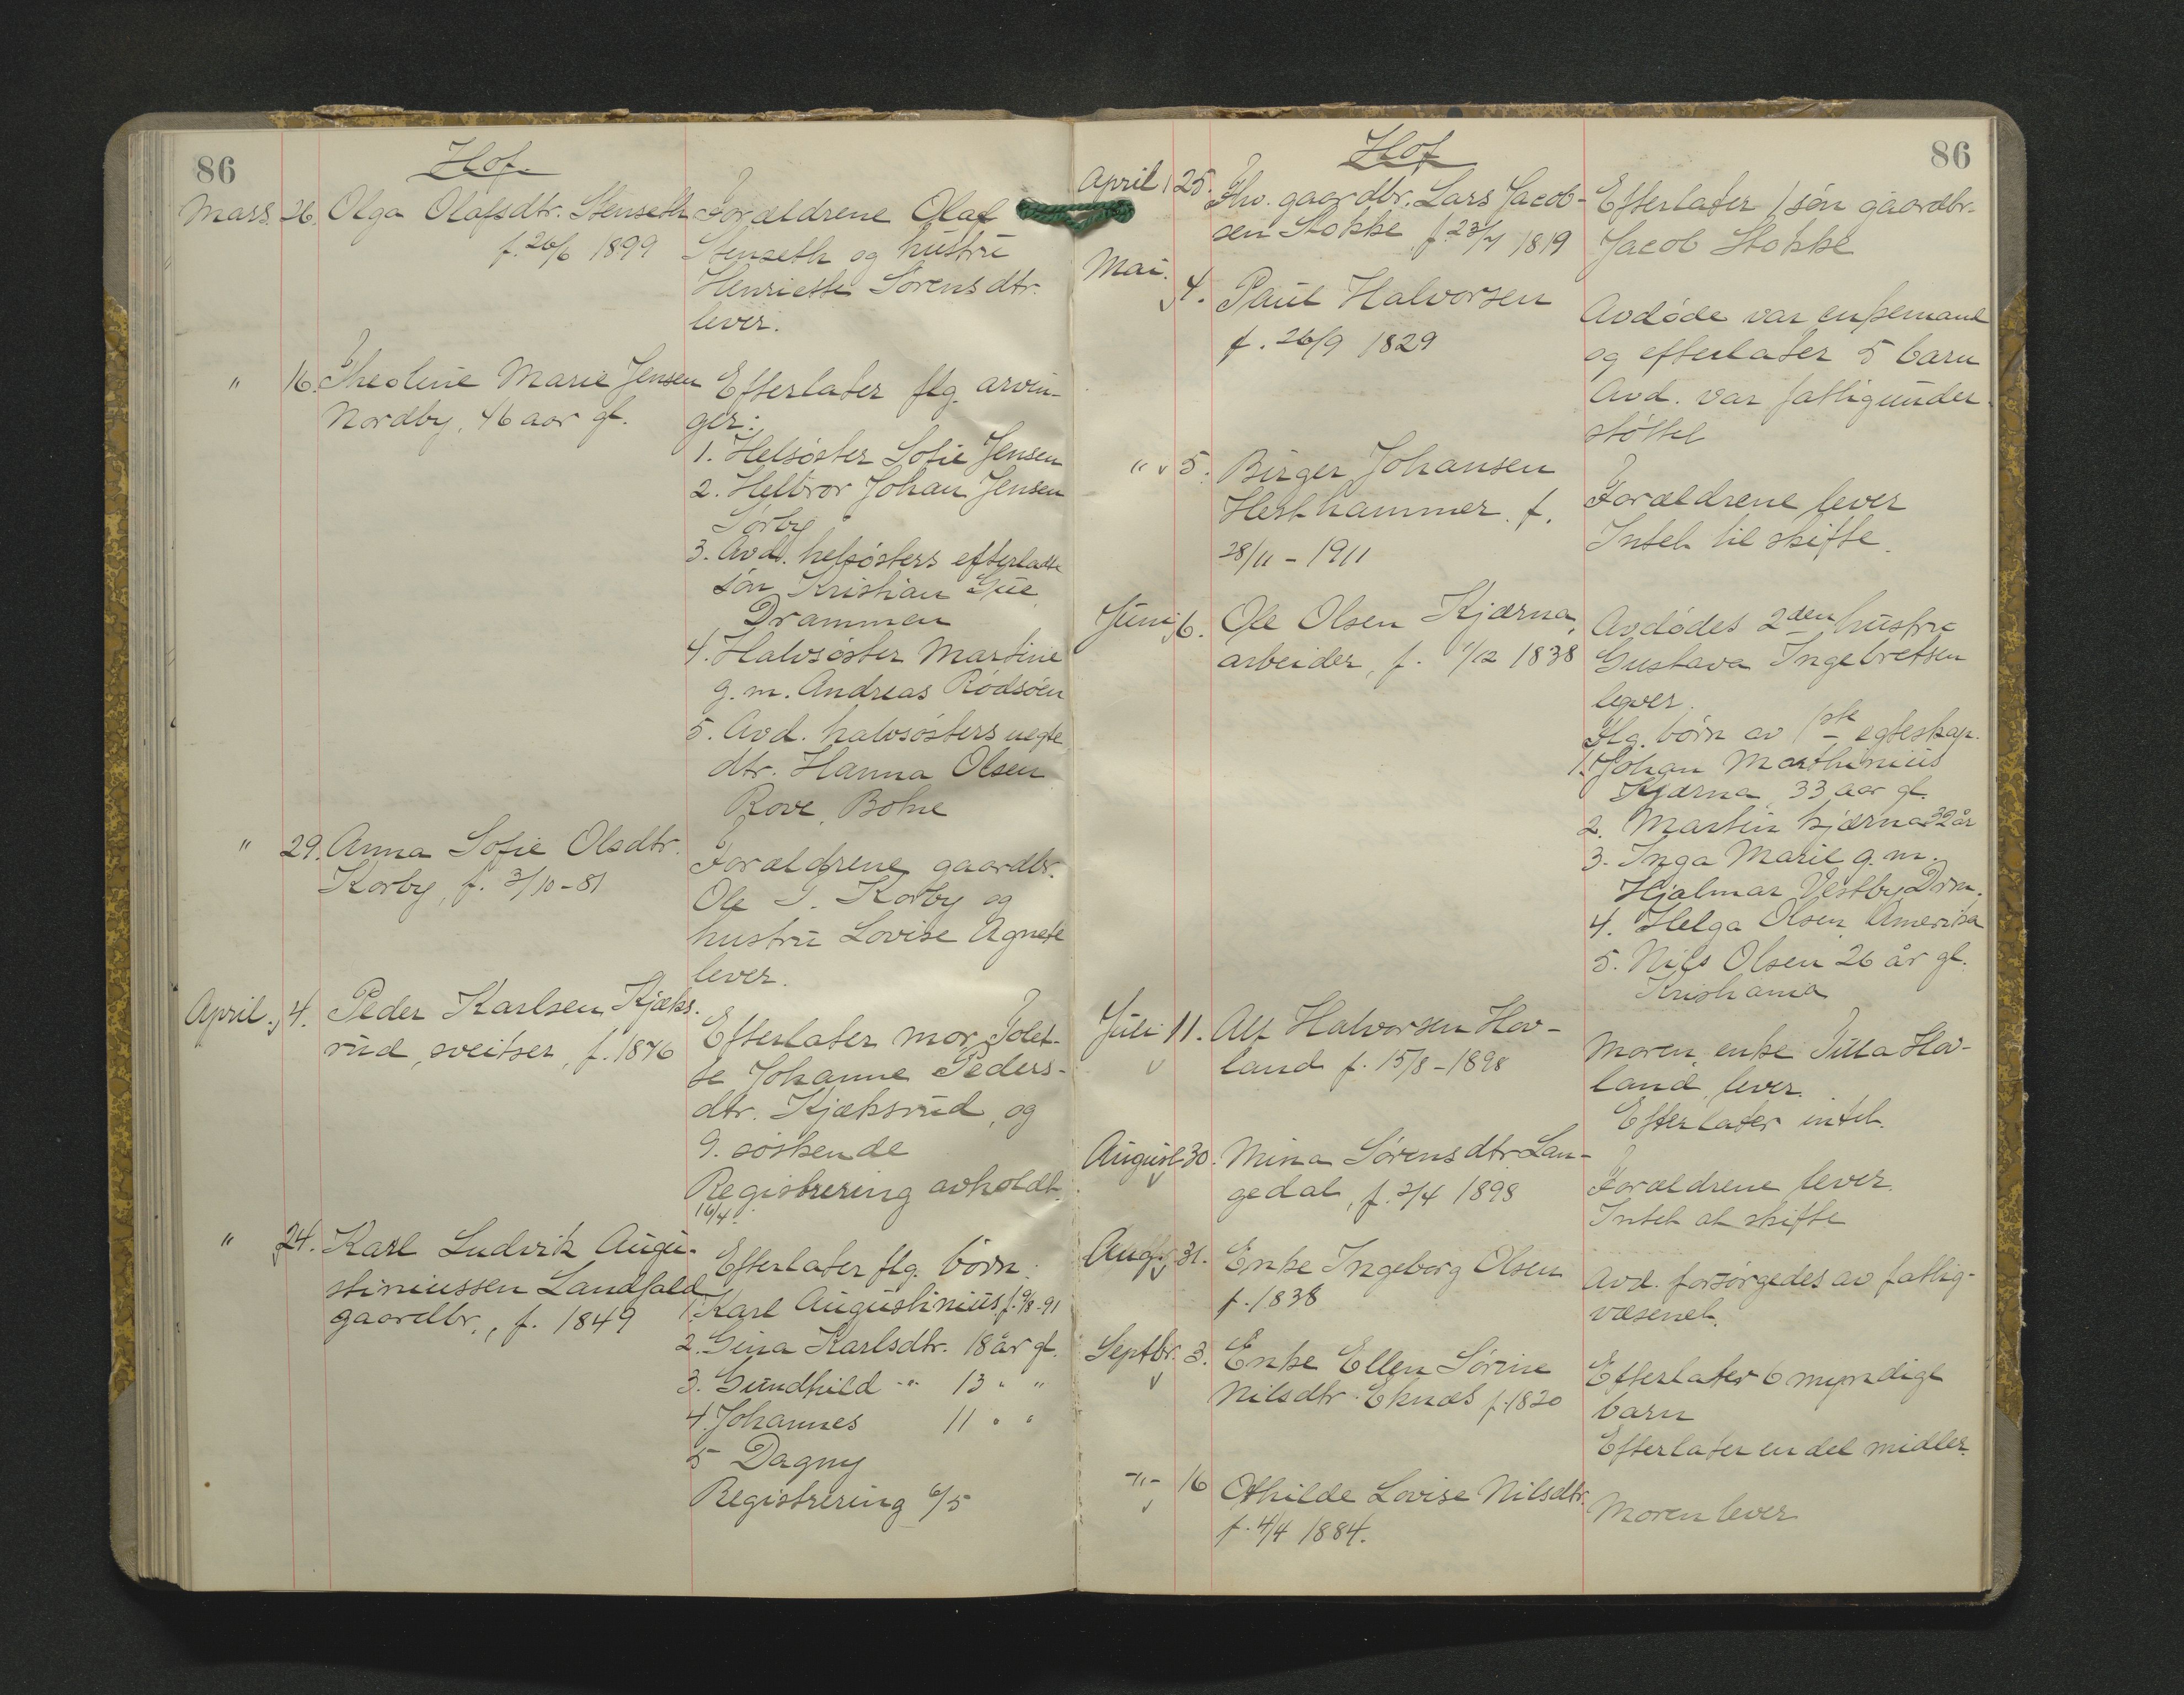 86
Hof.
Mars. 26. Olga Olafsdtr. Stenseth
f. 26/6 1899
Forældrene Olaf
Stenseth og hustru
Henriette Sørensdtr.
lever.
" 16. Theoline Marie Jensen
Nordby, 46 aar gl.
Efterlater flg. arvin-
ger:
1. Helsøster Sofie Jensen
2. Helbror Johan Jensen
Sørby
3. Avd. helsøsters efterladte
søn Kristian
Drammen
4. Halvsøster Martine
g. m. Andreas Rødsøen
5. Avd. halvsøsters uegte
dtr. Hanna Olsen
Rove, Botne
" 29. Anna Sofie Olsdtr.
Korby, f. 3/10-81
Forældrene gaardbr.
Ole I. Korby og
hustru Lovise Agnete
lever.
April. 4. Peder Karlsen Kjæks-
rud, sveitser, f. 1876
Efterlater mor Tolet-
te Johanne Peders-
dtr. Kjæksrud, og
9. søskende
Registrering avholdt
16/4.
" 24. Karl Ludvik Augu-
stiniussen Landfald
gaardbr., f. 1849
Efterlater flg. børn:
1. Karl Augustinius, f. 9/8-91
2. Gina Karlsdtr. 18 år gl.
3. Gundhild -"- 13 " "
4. Johannes 11 " "
5 Dagny
Registrering 6/5
Hof
86
April 25. Fhv. gaardbr. Lars Jacob-
sen Stokke, f. 23/7 1819
Efterlater 1 søn gaardbr.
Jacob Stokke
Mai.
4. Paul Halvorsen
f. 26/9 1829
Avdøde var enkemand
og efterlater 5 barn
Avd. var fattigunder-
støttet
" 5. Birger Johansen
Hesthammer. f.
28/11 - 1911
Forældrene lever
Intet til skifte.
Juni 6. Ole Olsen Kjærna,
arbeider, f. 1/12 1838
Avdødes 2den hustru
Gustava Ingebretsen
lever.
Flg. børn av 1ste egteskap.
1. Johan Marthinius
Kjærna 33 aar gl.
2. Martin Kjærna 32 år
3. Inga Marie g. m.
Hjalmar Vestby, Drm.
4. Helga Olsen, Amerika
5. Nils Olsen 26 år gl.
Kristiania
Juli 11. Alf Halvorsen Hov-
land f. 15/8 - 1898
Moren, enke Julla Hov-
land, lever.
Efterlater intet.
August 30. Mina Sørensdtr. Lan-
gedal, f. 2/4 1898
Forældrene lever.
Intet at skifte
Aug. 31. Enke Ingeborg Olsen
f. 1838
Avd. forsørgedes av fattig-
væsenet.
Septbr. 3. Enke Ellen Sørine
Nilsdtr. Eknæs f. 1820
Efterlater 6 myndige
barn
Efterlater en del midler.
-"- 16 Othilde Lovise Nilsdtr.
f. 4/4 1884.
Moren lever